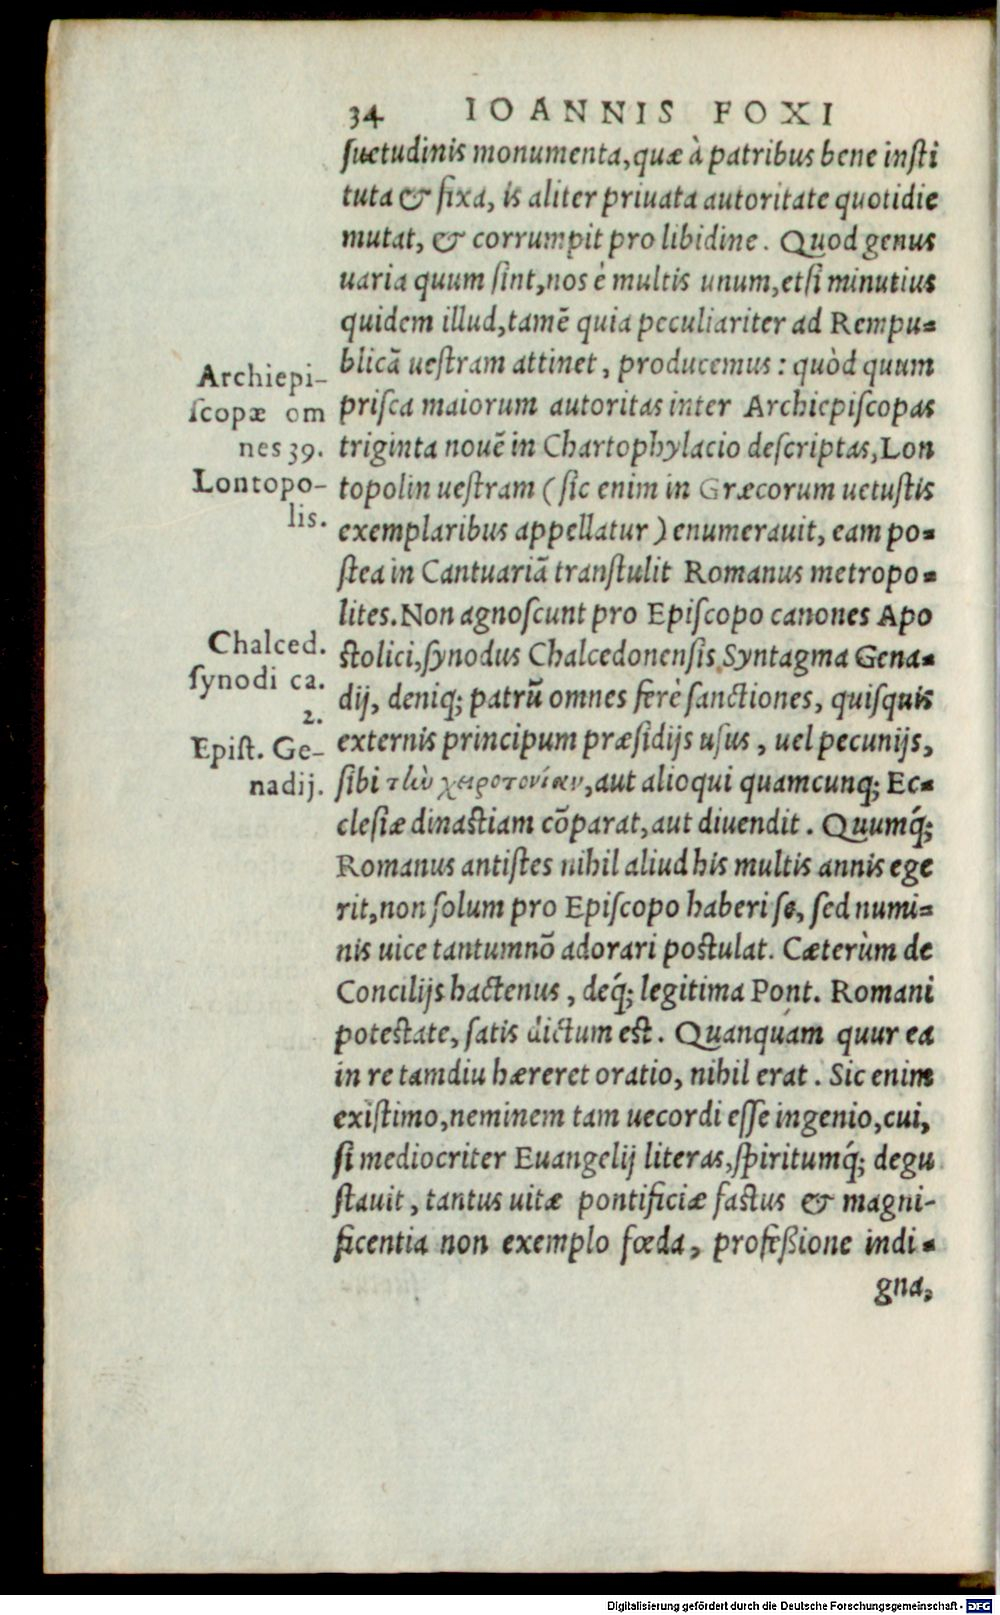 34 IOANNIS FOXI
ſuetudinis monumenta, quæ à patribus bene inſti
tuta & fixa, is aliter priuata autoritate quotidie
mutat, & corrumpit pro libidine. Quod genus
uaria quum ſint, nos è multis unum, etſi minutius
quidem illud, tamē quia peculiariter ad Rempu=
blicā ueſtram attinet, producemus: quòd quum
priſca maiorum autoritas inter Archiepiſcopas
triginta nouē in Chartophylacio deſcriptas, Lon
topolin ueſtram (ſic enim in Græcorum uetuſtis
exemplaribus appellatur) enumerauit, eam po=
ſtea in Cantuariā tranſtulit Romanus metropo=
lites. Non agnoſcunt pro Epiſcopo canones Apo
ſtolici, ſynodus Chalcedonenſis, Syntagma Gena=
dij, deniq; patrū omnes ferè ſanctiones, quiſquis
externis principum præſidijs uſus, uel pecunijs,
ſibi τὴν χειροτονίαν, aut alioqui quamcunq; Ec=
cleſiæ dinaſtiam cōparat, aut diuendit. Quumq́;
Romanus antiſtes nihil aliud his multis annis ege
rit, non ſolum pro Epiſcopo haberi ſe, ſed numi=
nis uice tantumnō adorari poſtulat. Cæterùm de
Concilijs hactenus, deq́; legitima Pont. Romani
poteſtate, ſatis dictum eſt. Quanquam quur ea
in re tamdiu hæreret oratio, nihil erat. Sic enim
exiſtimo, neminem tam uecordi eſſe ingenio, cui,
ſi mediocriter Euangelij literas, ſpiritumq́; degu
ſtauit, tantus uitæ pontificiæ faſtus & magni-
ficentia non exemplo fœda, profeßione indi=
gna,
Archiepi-
ſcopæ om
nes 39.
Lontopo-
lis.
Chalced.
ſynodi ca.
2.
Epiſt. Ge-
nadij.
Digitalisierung gefördert durch die Deutsche Forschungsgemeinschaft - DFG